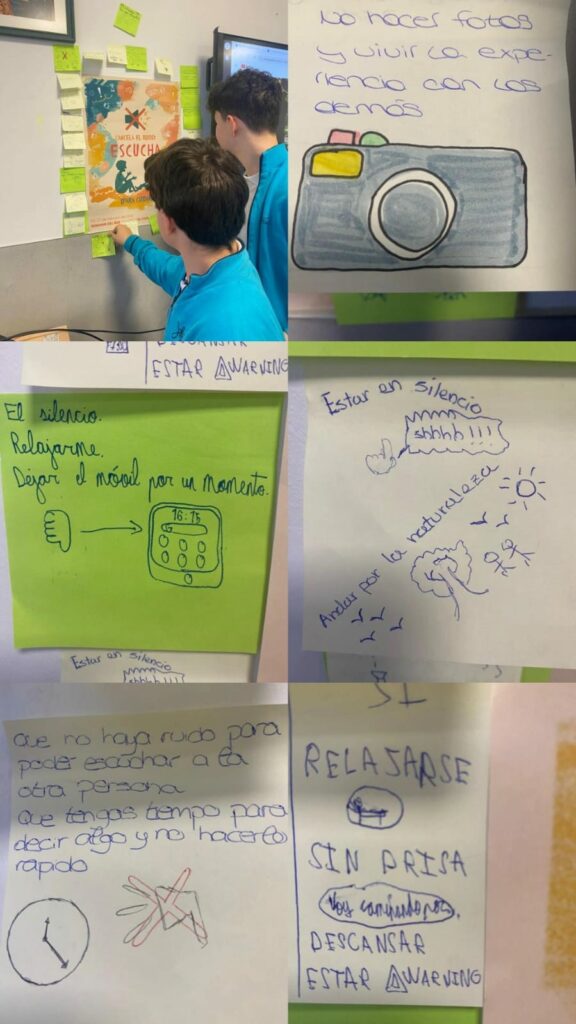 CANCELA EL RUIDO
ESCUCHA
No hacer fotos
y vivir la expe-
riencia con los
demás
ESTAR WARNING
El silencio.
Relajarme.
Dejar el móvil por un momento.
16:15
Estar en silencio
shhhh!!!
Andar por la naturaleza
Estar en silencio
shhhh!!!
que no haya ruido para
poder escuchar a la
otra persona
Que tengas tiempo para
decir algo y no hacerlo
rapido
SI
RELAJARSE
SIN PRISA
Voy
DESCANSAR
ESTAR WARNING